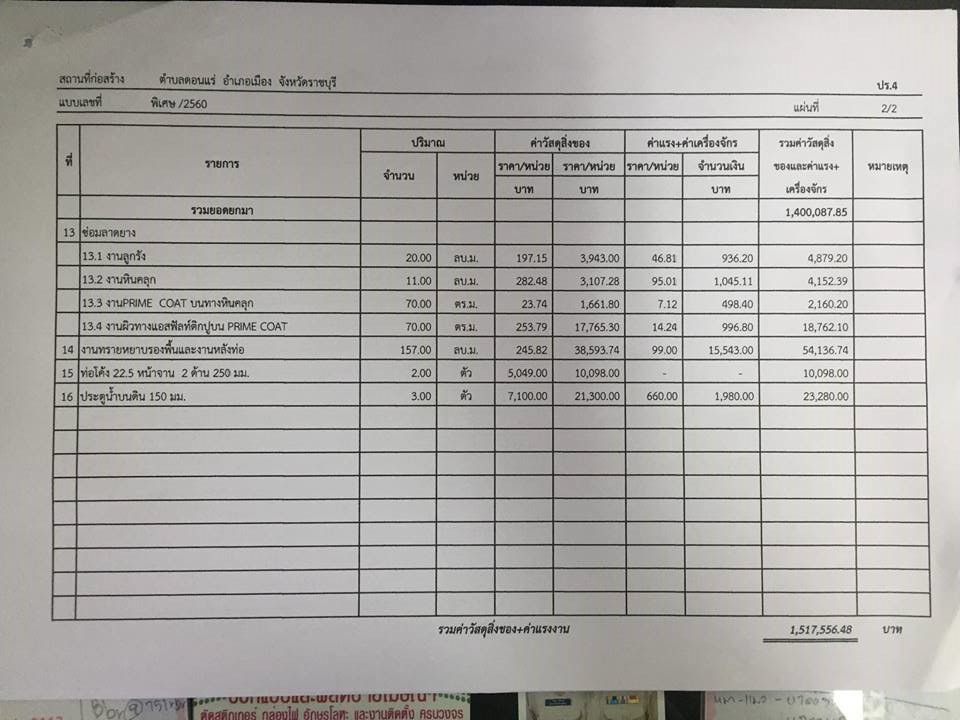 สถานที่ก่อสร้าง ตำบลดอนแร่ อำเภอเมือง จังหวัดราชบุรี
ปร.4
แบบเลขที่ พิเศษ /2560 แผ่นที่ 2/2
ที่ รายการ ปริมาณ ค่าวัสดุสิ่งของ ค่าแรง+ค่าเครื่องจักร รวมค่าวัสดุสิ่งของและค่าแรง+เครื่องจักร หมายเหตุ
จำนวน หน่วย ราคา/หน่วย ราคา/หน่วย ราคา/หน่วย จำนวนเงิน
บาท บาท บาท
รวมยอดยกมา 1,400,087.85
13 ซ่อมลาดยาง
13.1 งานลูกรัง 20.00 ลบ.ม. 197.15 3,943.00 46.81 936.20 4,879.20
13.2 งานหินคลุก 11.00 ลบ.ม. 282.48 3,107.28 95.01 1,045.11 4,152.39
13.3 งานPRIME COAT บนทางหินคลุก 70.00 ตร.ม. 23.74 1,661.80 7.12 498.40 2,160.20
13.4 งานผิวทางแอสฟัลท์ติกปูบน PRIME COAT 70.00 ตร.ม. 253.79 17,765.30 14.24 996.80 18,762.10
14 งานทรายหยาบรองพื้นและงานหลังท่อ 157.00 ลบ.ม. 245.82 38,593.74 99.00 15,543.00 54,136.74
15 ท่อโค้ง 22.5 หน้าจาน 2 ด้าน 250 มม. 2.00 ตัว 5,049.00 10,098.00 - - 10,098.00
16 ประตูน้ำบนดิน 150 มม. 3.00 ตัว 7,100.00 21,300.00 660.00 1,980.00 23,280.00
รวมค่าวัสดุสิ่งของ+ค่าแรงงาน 1,517,556.48 บาท
ตัดสติกเกอร์ กล่องไฟ อักษรโลหะ และงานติดตั้ง ครบวงจร